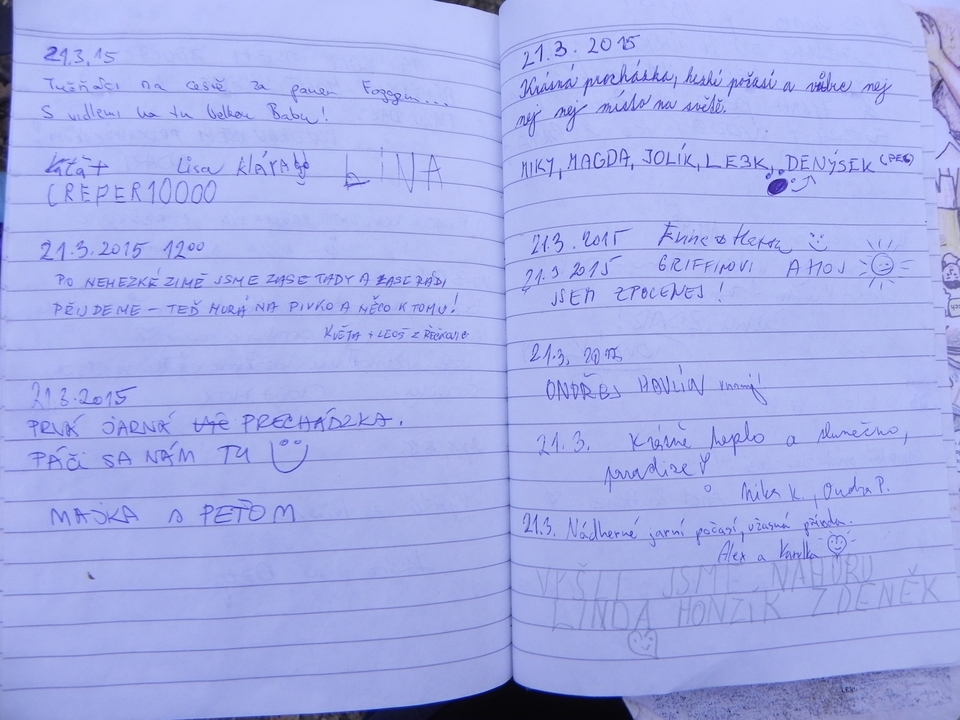 21.3.15
Tučňáci na cestě za panem Foggem...
S vidlemi na tu velkou Babu!
Lisa KlÁRA LiNA
CREPER10000
21.3.2015 12⁰⁰
PO NEHEZKÉ ZIMĚ JSME ZASE TADY A ZASE RÁDI
PŘIJDEME – TEĎ HURÁ NA PIVKO A NĚCO K TOMU!
KVĚTA + LEOŠ Z
21.3.2015
PRVÁ JARNÁ PRECHÁDZKA.
PÁČi SA NÁM TU
MAJKA A PEŤOM
21.3.2015
Krásná procházka, hezké počasí a vůbec nej
nej nej místo na světě.
MIKY, MAGDA, JOLÍK, LESK, DENÝSEK (PES)
21.3.2015
21.3.2015 GRIFFINOVI AHOJ
JSEM ZPOCENEJ!
21.3. 2015
ONDŘEJ HAVLÍN
21.3. Krásné teplo a slunečno,
paradize!
Nika K., Ondra P.
21.3. Nádherné jarní počasí, úžasná příroda.
Alex a Kamilka
VYŠLI JSME NAHORU
LINDA HONZÍK ZDENĚK